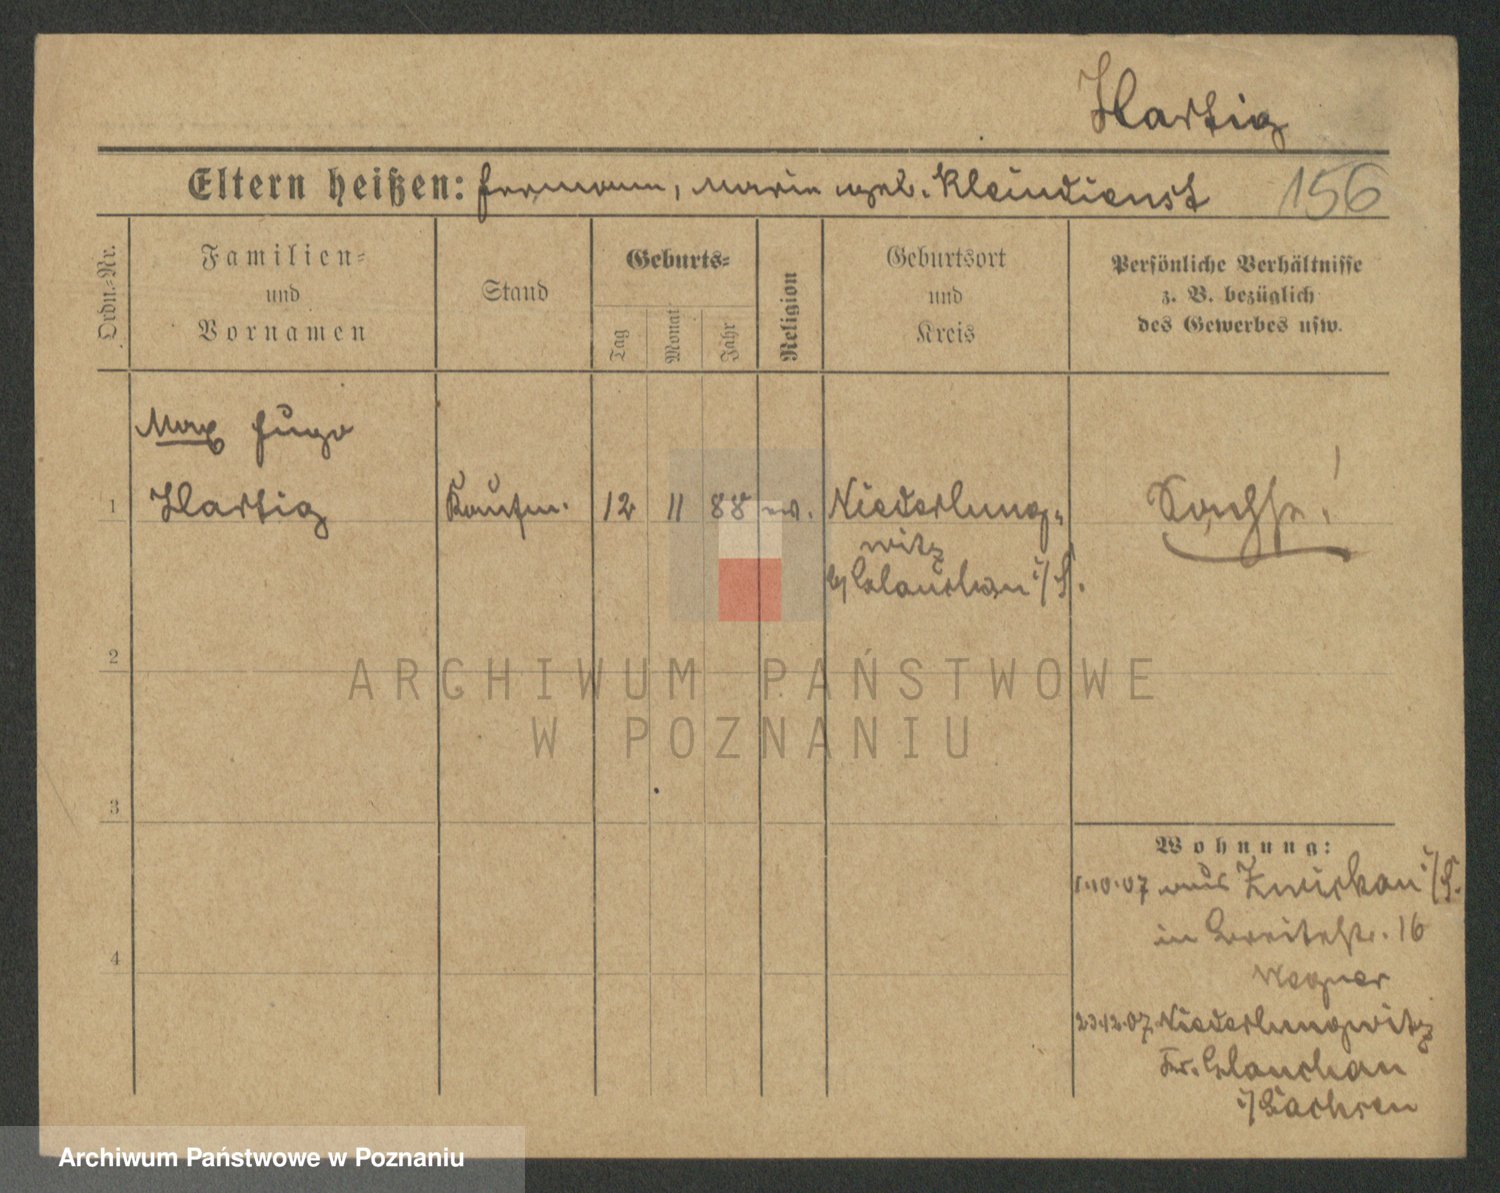 Hartig
Eltern heißen: Hermann, Marie geb. Kleindienst
156
Ordn.-Nr.
Familien-
und
Vornamen
Stand
Geburts-
Tag
Monat
Jahr
Religion
Geburtsort
und
Kreis
Persönliche Verhältnisse
z. B. bezüglich
des Gewerbes usw.
Max Hugo
1 Hartig Kaufm. 12 11 88 ev. Niederlung-
witz
b/ Glauchau i/S.
Sachse!
2
3
4
Wohnung:
1.10.07 aus Zwickau i/S.
in Breitestr. 16
Wegner
23.12.07. Niederlungwitz
Kr. Glauchau
i/Sachsen
ARCHIWUM PAŃSTWOWE
W POZNANIU
Archiwum Państwowe w Poznaniu